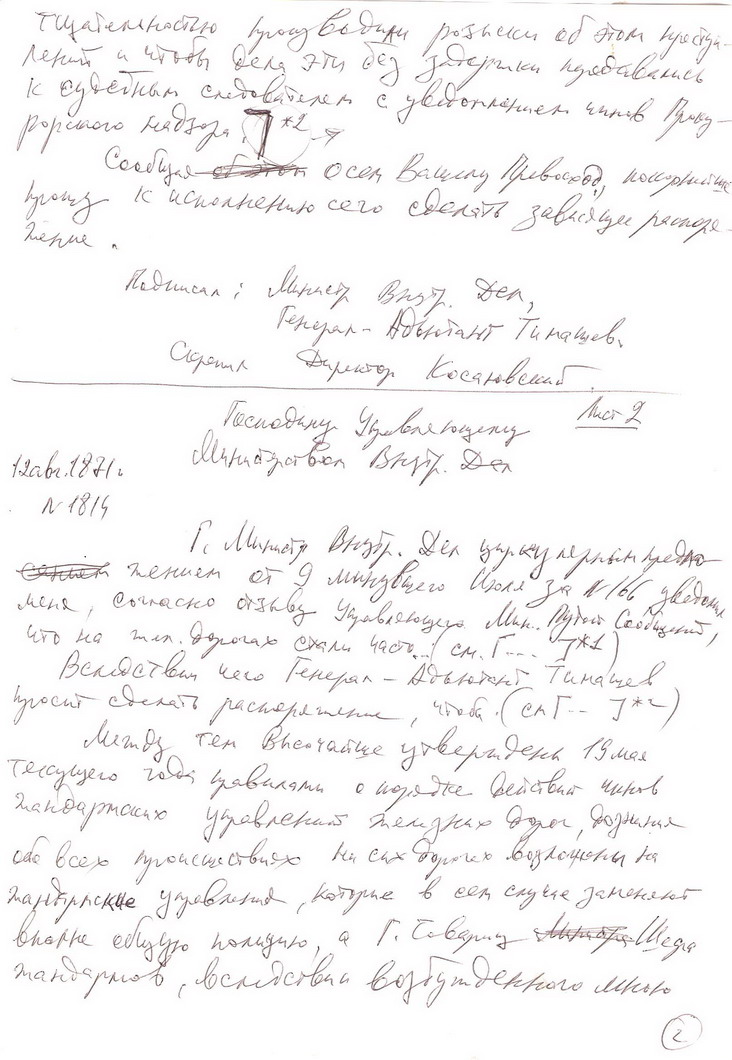 тщательностью производили розыски об этом преступ-
лений и чтобы дела эти без задержки передавались
к судебным следователем с уведомлением чинов Проку-
рорского надзора. ] *2
Сообщая об этом осем Вашему Превосход, покорнейше
прошу к исполнению сего сделать зависящее распоря-
жение.
Подписал: Министр Внутр. Дел,
Генерал-Адьютант Тимашев.
Скрепил Директор Косаговский
Лист 2
Господину Управляющему
Министерством Внутр. Дел
12 авг. 1871 г.
N 1814
Г. Министр Внутр. Дел циркулярным предло-
жением от 9 минувшего Июля за N 166 уведомил
меня, согласно отзыву Управляющего Мин. Путей Сообщений,
что на жел. дорогах стали часто... (см. Г--- ]*1)
Вследствии чего Генерал-Адьютант Тимашев
просит сделать распоряжение, чтобы. (см Г-- ]*2)
Между тем Высочайше утверждены 19 мая
текущего года правилами о порядке действий чинов
жандармских управлений железных дорог, дознания
обо всех происшествиях на сих дорогах возложены на
жандармские управления, которые в сем случае заменяют
вполне общую полицию, а Г. Товарищ Шефа
жандармов, вследствии возбужденного мною
2